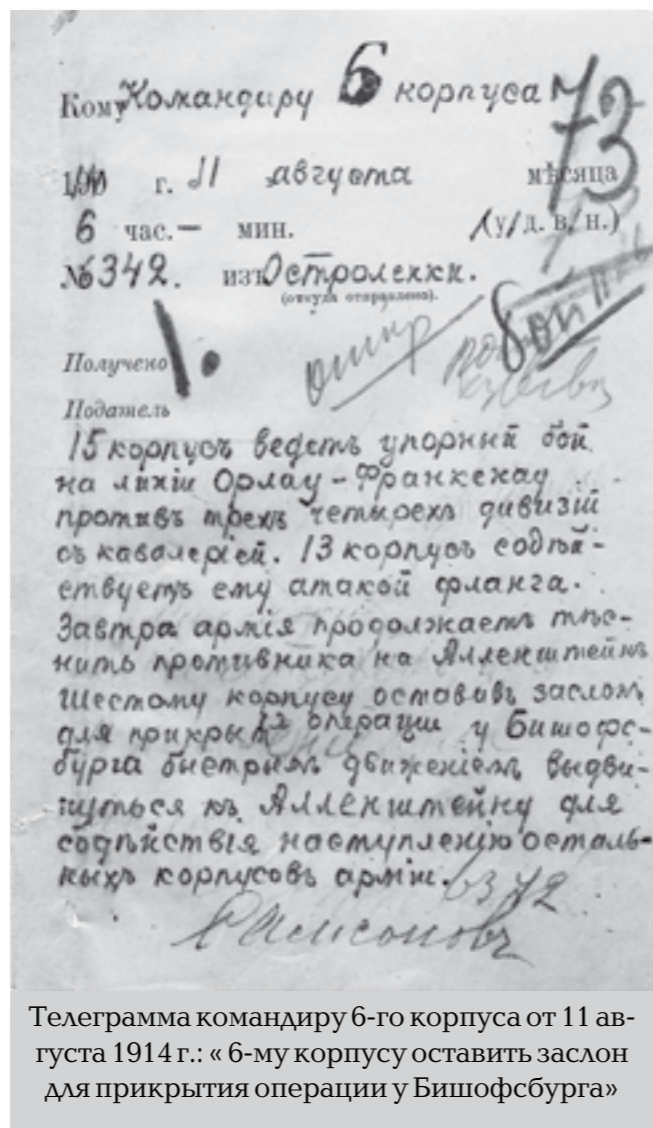 Кому Командиру 6 корпуса
73
г. 11 августа мѣсяца
6 час. — мин. (у/д. в/н.)
№ 6342. изъ Остроленки.
(откуда отправлено).
бой
Получено
Податель
15 корпусъ ведетъ упорный бой
на линіи Орлау-Франкенау
противъ трехъ четырехъ дивизій
съ кавалеріей. 13 корпусъ содѣй-
ствуетъ ему атакой фланга.
Завтра армія продолжаетъ тѣс-
нить противника на Алленштейнъ
Шестому корпусу оставивъ заслонъ
для прикрытія операціи у Бишофс-
бурга быстрымъ движеніемъ выдви-
нуться къ Алленштейну для
содѣйствія наступленію осталь-
ныхъ корпусовъ арміи. 6342
Самсоновъ
Телеграмма командиру 6-го корпуса от 11 ав-
густа 1914 г.: « 6-му корпусу оставить заслон
для прикрытия операции у Бишофсбурга»